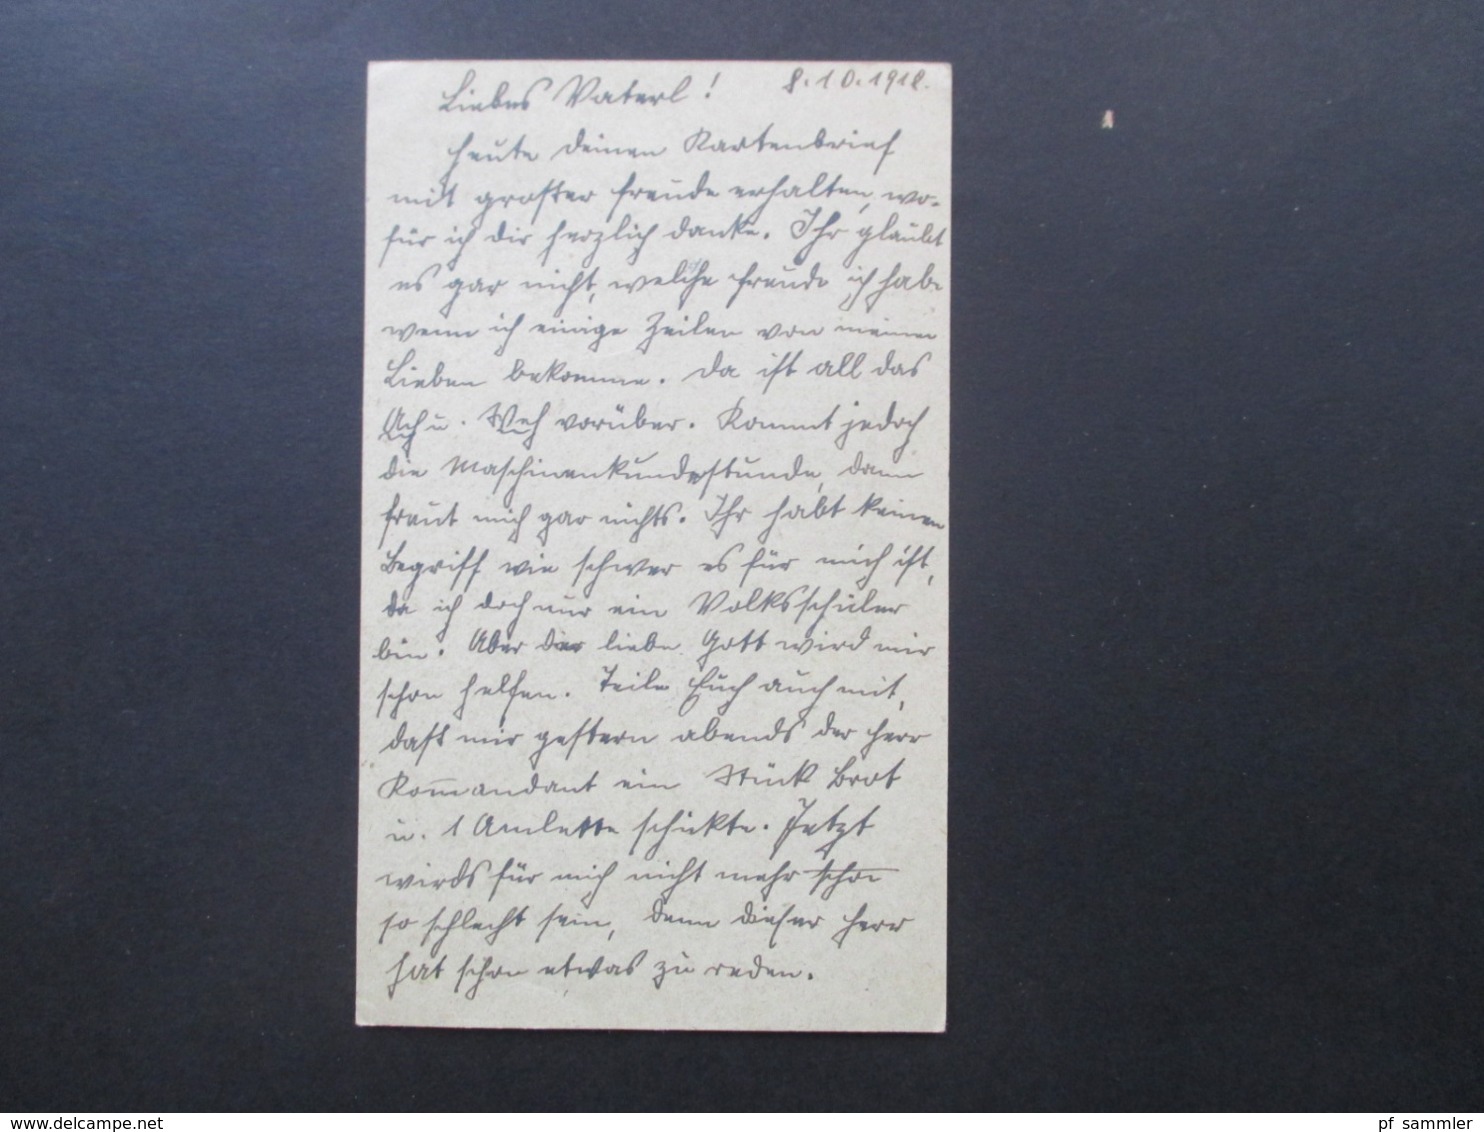 Liebes Vaterl! 8.10.1918.
Heute deinen Kartenbrief
mit großer Freude erhalten, wo-
für ich dir herzlich danke. Ihr glaubt
es gar nicht, welche Freude ich habe
wenn ich einige Zeilen von meinen
Lieben bekomme. Da ist all das
Ach u. Weh vorüber. Kommt jedoch
die Maschinenkundestunde, dann
freut mich gar nichts. Ihr habt keinen
Begriff wie schwer es für mich ist,
da ich doch nur ein Volksschüler
bin. Aber der liebe Gott wird mir
schon helfen. Teile Euch auch mit,
daß mir gestern abends der Herr
Kommandant ein Stück Brot
u. 1 Amlette schickte. Jetzt
wirds für mich nicht mehr schon
so schlecht sein, denn dieser Herr
hat schon etwas zu reden.
www.delcampe.net
pf_sammler